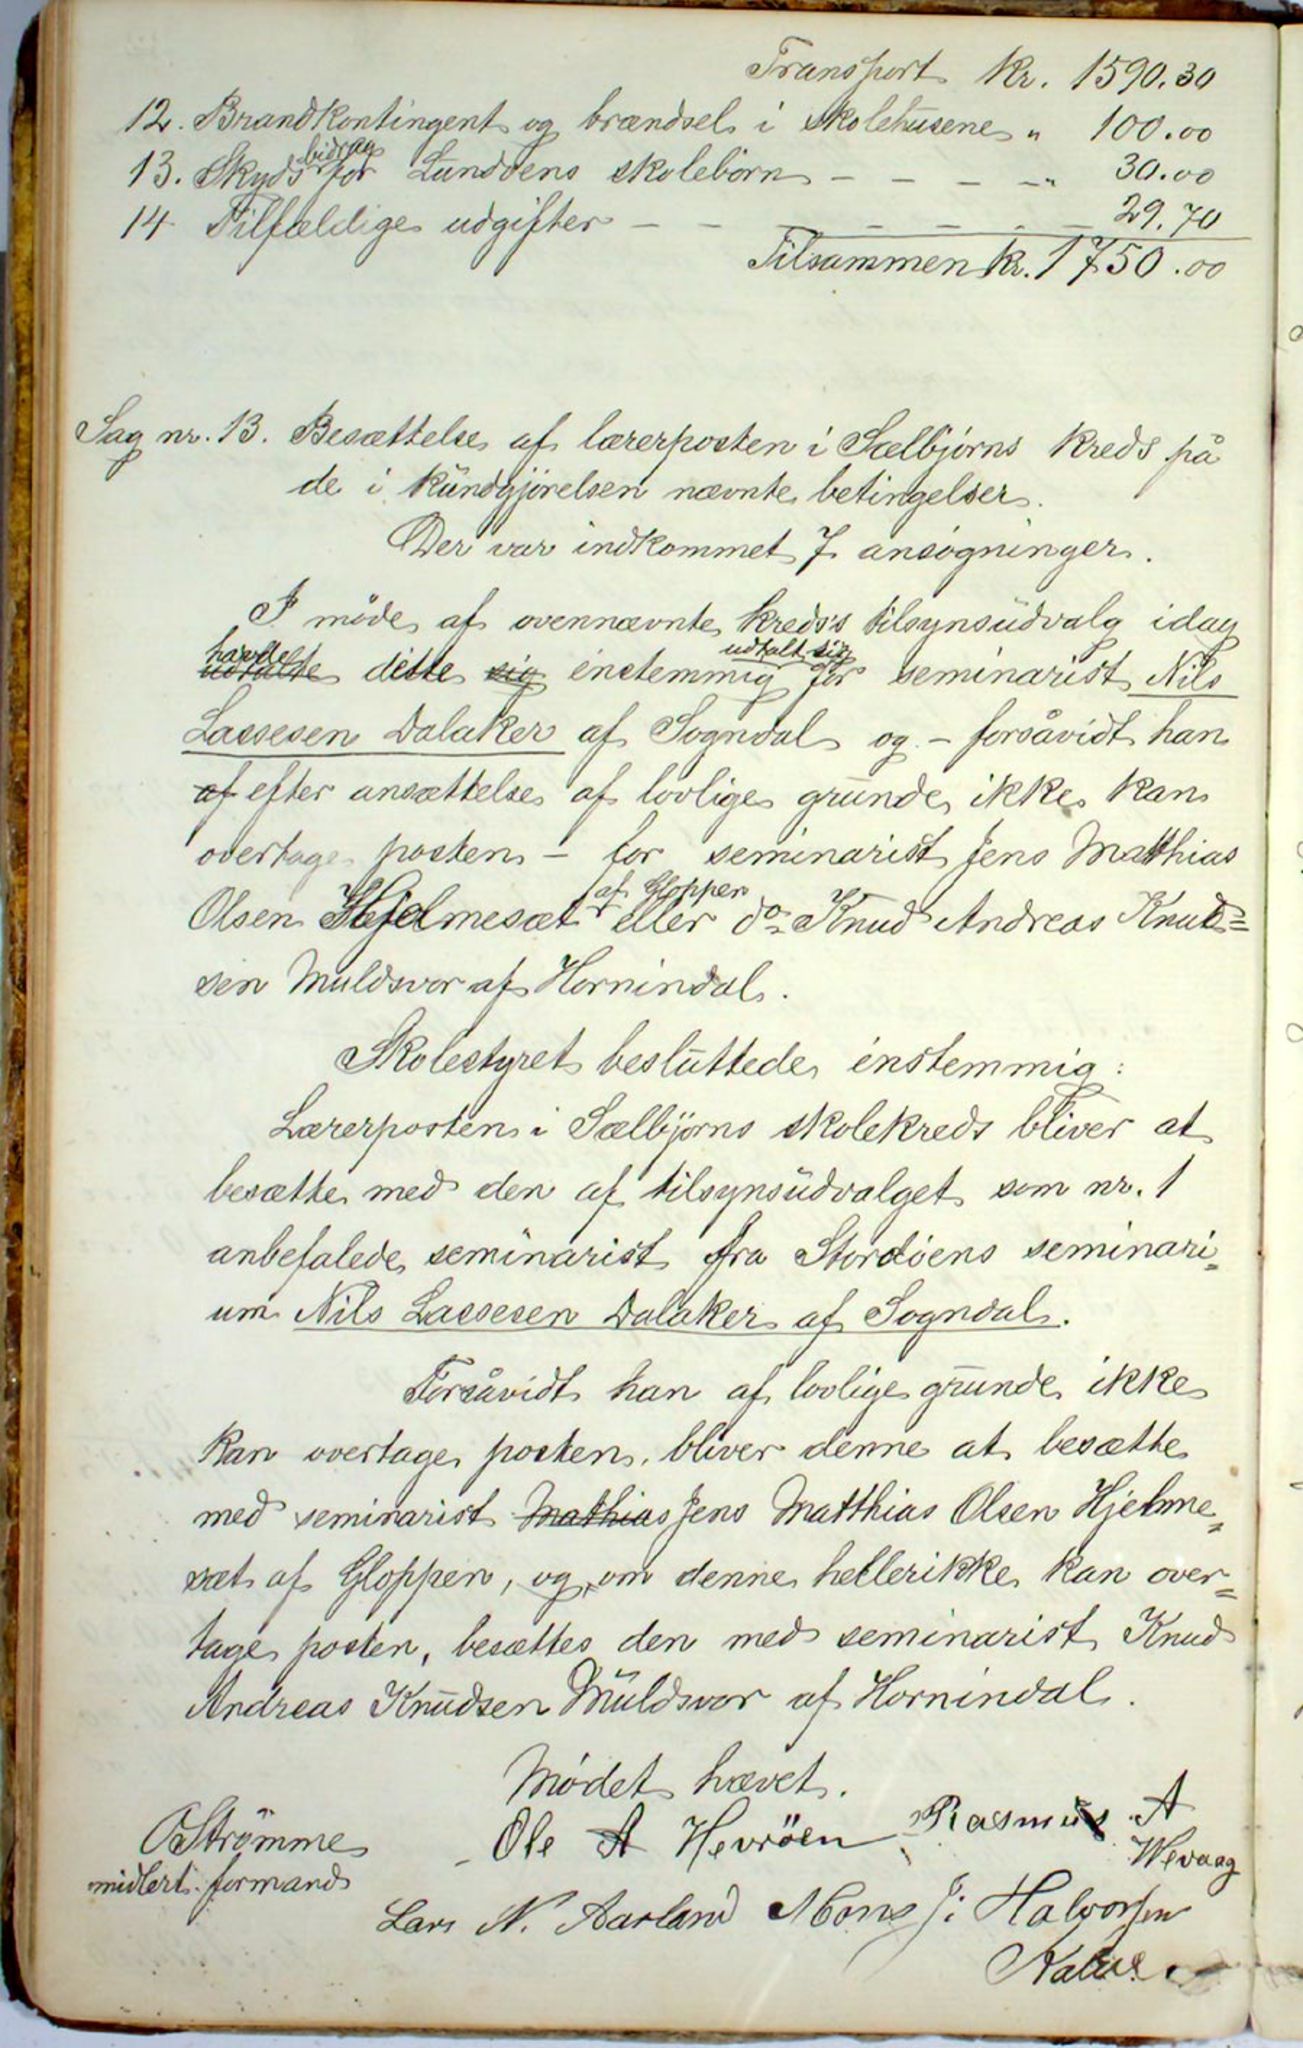 Transport Kr. 1590.30
12. Brandkontingent og brændsel i skolehusene " 100.00
13. Skydsbidrag for Lundøens skolebørn - - - - " 30.00
14 Tilfældige udgifter - - - - - - - 29.70
Tilsammen kr. 1750.00
Sag nr. 13. Besættelse af lærerposten i Sælbjørns kreds på
de i kundgjørelsen nævnte betingelser.
Der var indkommet 7 ansøgninger.
I møde af ovennævnte kreds's tilsynsudvalg idag
havde udtalte dette sig enstemmig udtalt sig for seminarist Nils
Lassesen Dalaker af Sogndal og - forsåvidt han
af efter ansættelse af lovlige grunde ikke kan
overtage posten - for seminarist Jens Matthias
Olsen Hjelmesæt af Gloppen eller do Knud Andreas Knud=
sen Muldsvor af Hornindal.
Skolestyret besluttede enstemmig:
Lærerposten i Sælbjørns skolekreds bliver at
besætte med den af tilsynsudvalget som nr. 1
anbefalede seminarist fra Stordøens seminari=
um Nils Lassesen Dalaker af Sogndal.
Forsåvidt han af lovlige grunde ikke
kan overtage posten, bliver denne at besætte
med seminarist Mathias Jens Matthias Olsen Hjelme=
sæt af Gloppen, og, om denne heller ikke kan over=
tage posten, besættes den med seminarist Knud
Andreas Knudsen Muldsvor af Hornindal.
Mødet hævet.
OStrömme Ole A Hevrøen Rasmus A
midlert. formand Wevaag
Lars N. Aarland Mons J: Halvorsen